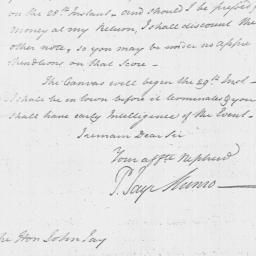 on the 28th Instant - and should I be pressed for
money at my Return, I shall discount the
other note, so you may be under no appre
hendsions on that Score -
The Canvas will begin the 29th Inst -
I shall be in town before it terminates & you
shall have early Intelligence of the Event -
I remain Dear Sir
Your affte Nephew
P. Jay Munro
The Hon John Jay